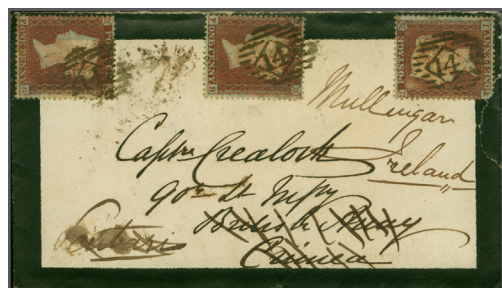 POSTAGE
ONE PENNY
POSTAGE
ONE PENNY
POSTAGE
ONE PENNY
Mullingar
Ireland
Captn Crealock
90th Lt Infy
British Army
Crimea